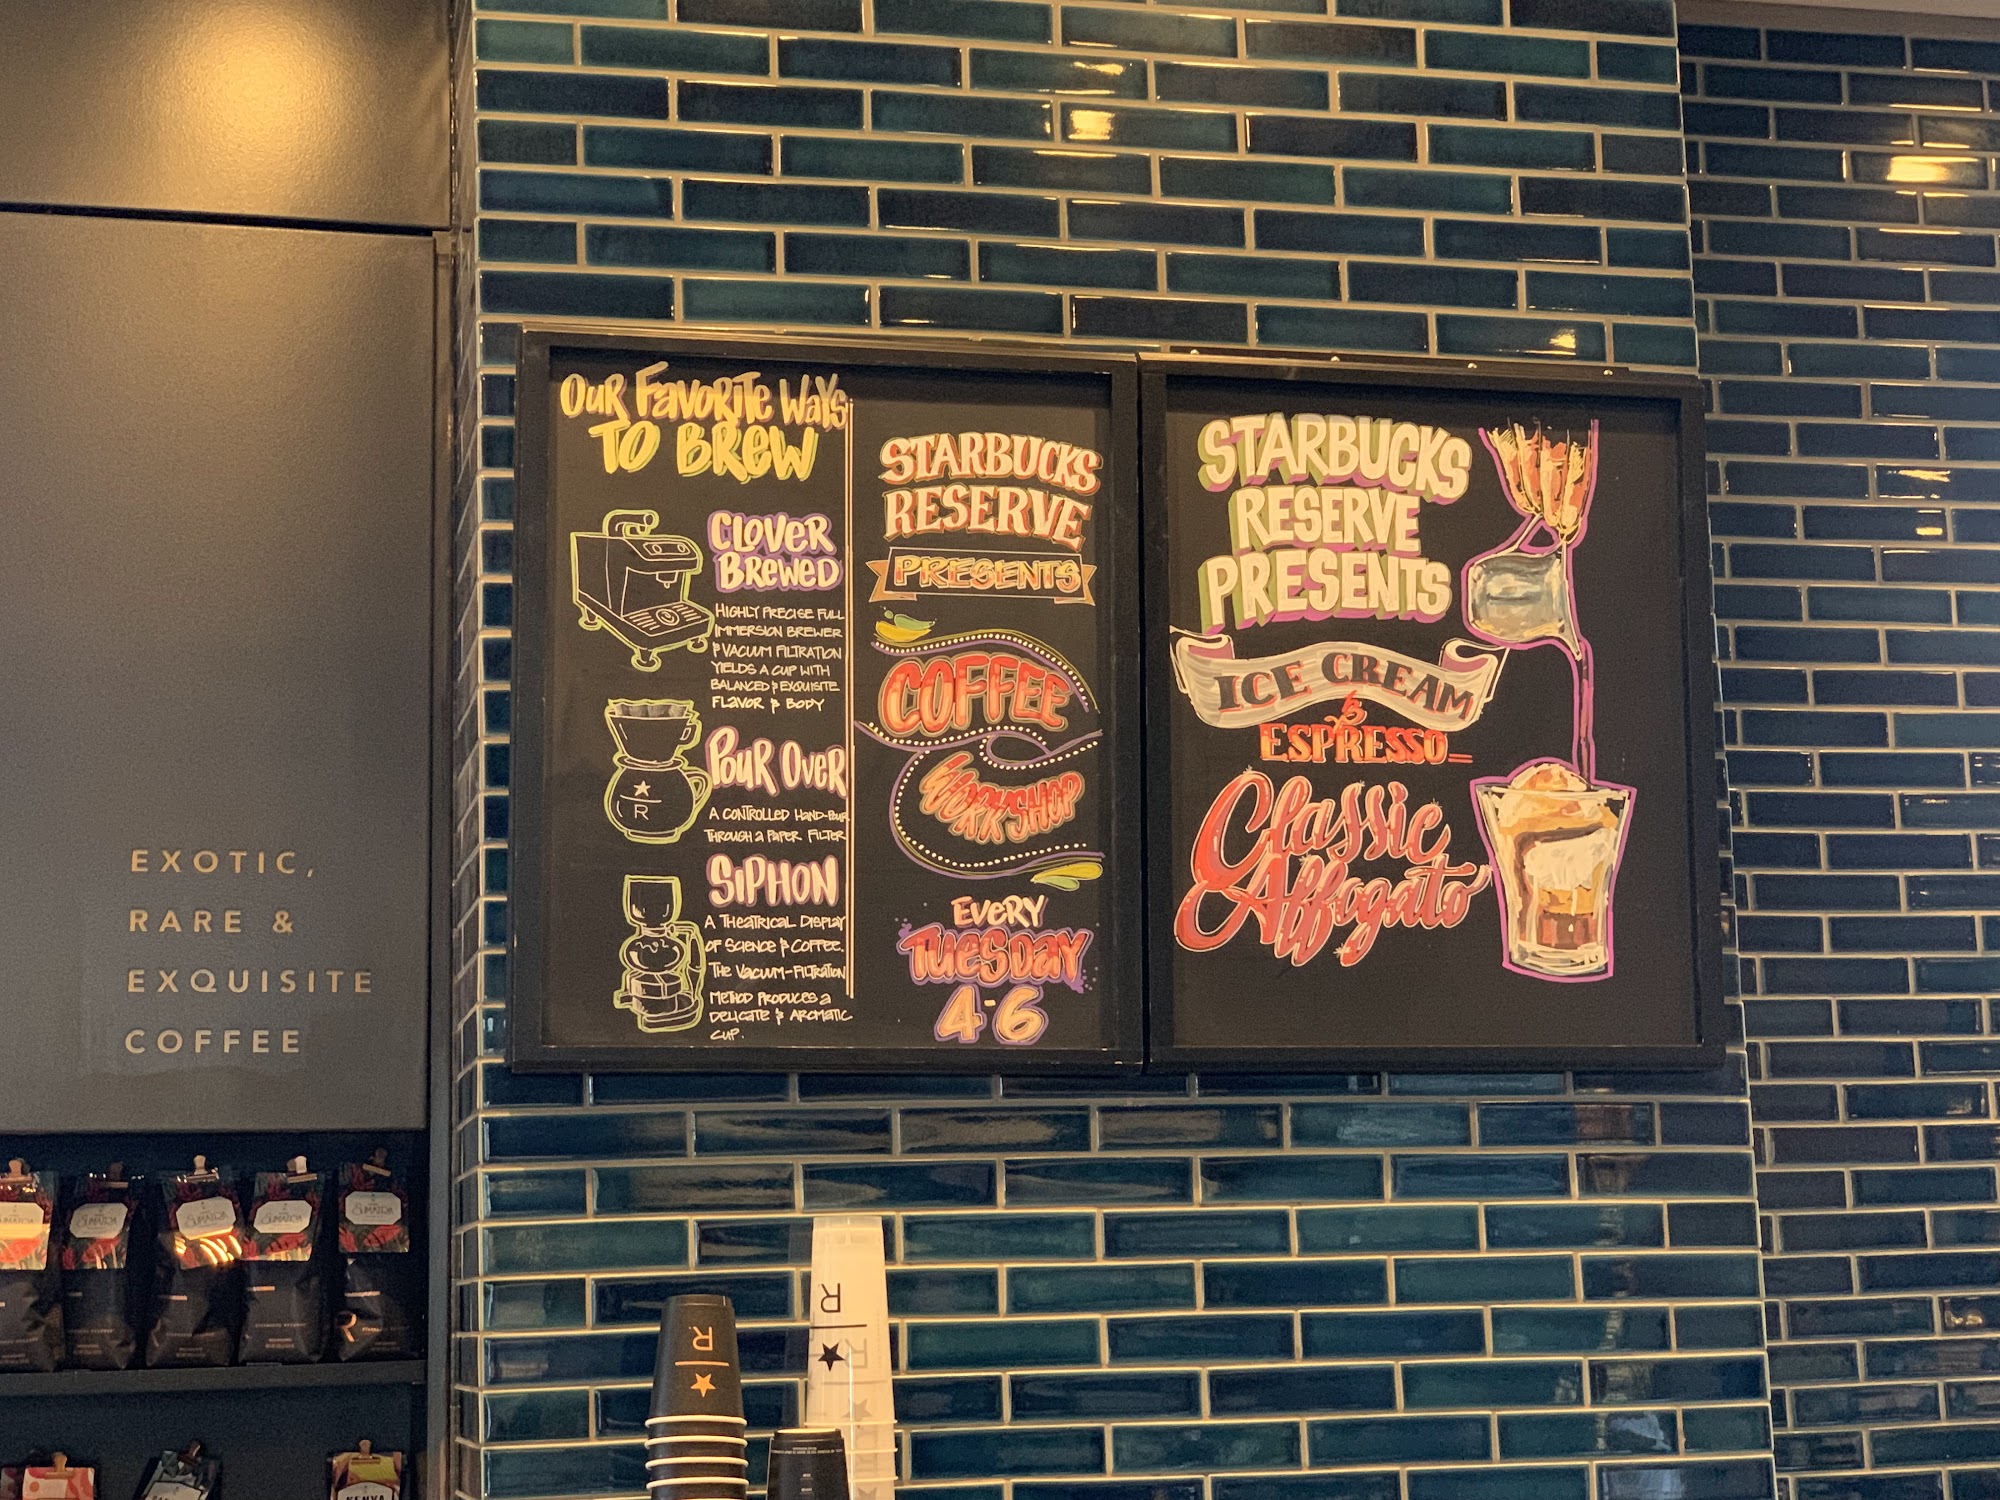 EXOTIC,
RARE &
EXQUISITE
COFFEE
OUR FAVORITE WAYS
TO BREW
CLOVER
BREWED
HIGHLY PRECISE FULL
IMMERSION BREWER
& VACUUM FILTRATION
YIELDS A CUP WITH
BALANCED & EXQUISITE
FLAVOR & BODY
POUR OVER
A CONTROLLED HAND-POUR
THROUGH A PAPER FILTER
SIPHON
A THEATRICAL DISPLAY
OF SCIENCE & COFFEE.
THE VACUUM-FILTRATION
METHOD PRODUCES A
DELICATE & AROMATIC
CUP.
R
STARBUCKS
RESERVE
PRESENTS
COFFEE
WORKSHOP
EVERY
TUESDAY
4-6
STARBUCKS
RESERVE
PRESENTS
ICE CREAM
&
ESPRESSO
Classic
Affogato
SUMATRA
SUMATRA
SUMATRA
SUMATRA
R
R
R
R
KENYA